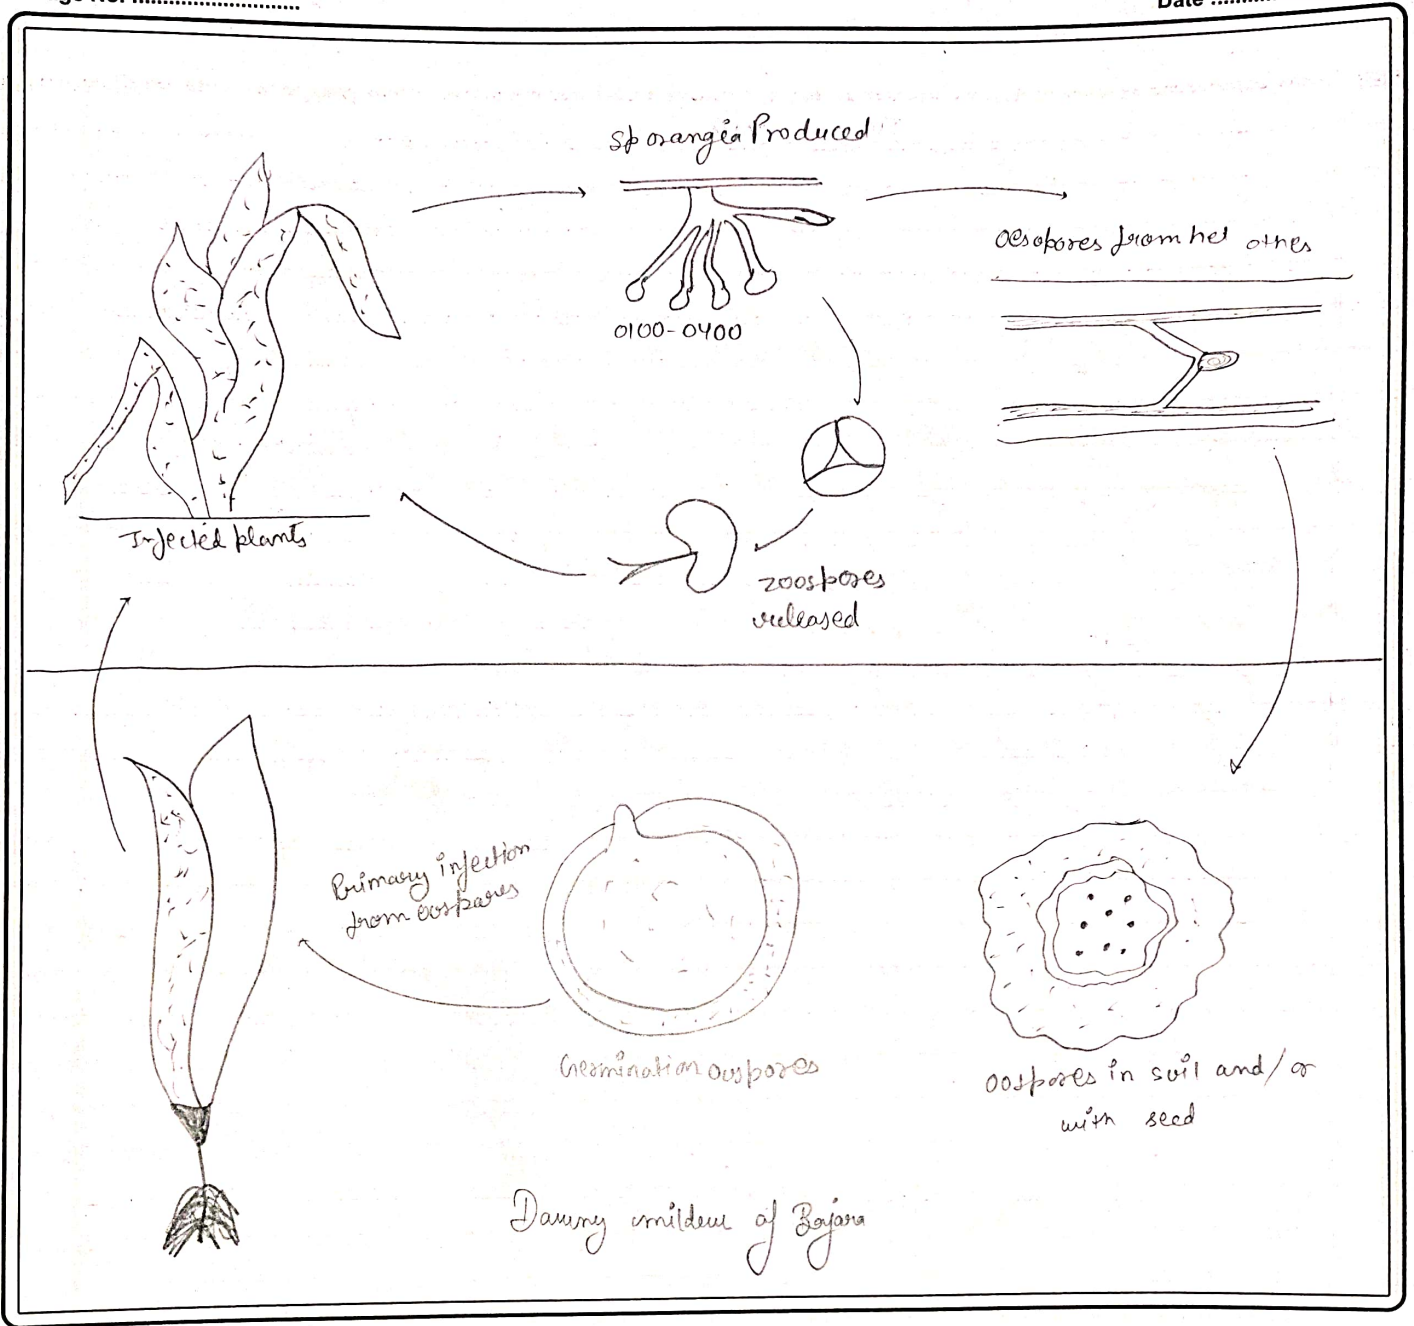 Date ............
Sporangia Produced
0100-0400
Oesopores from het othes
Infected plants
zoospores
released
Primary infection
from oospares
Germination oospores
oospores in soil and/or
with seed
Dawny mildew of Bajara